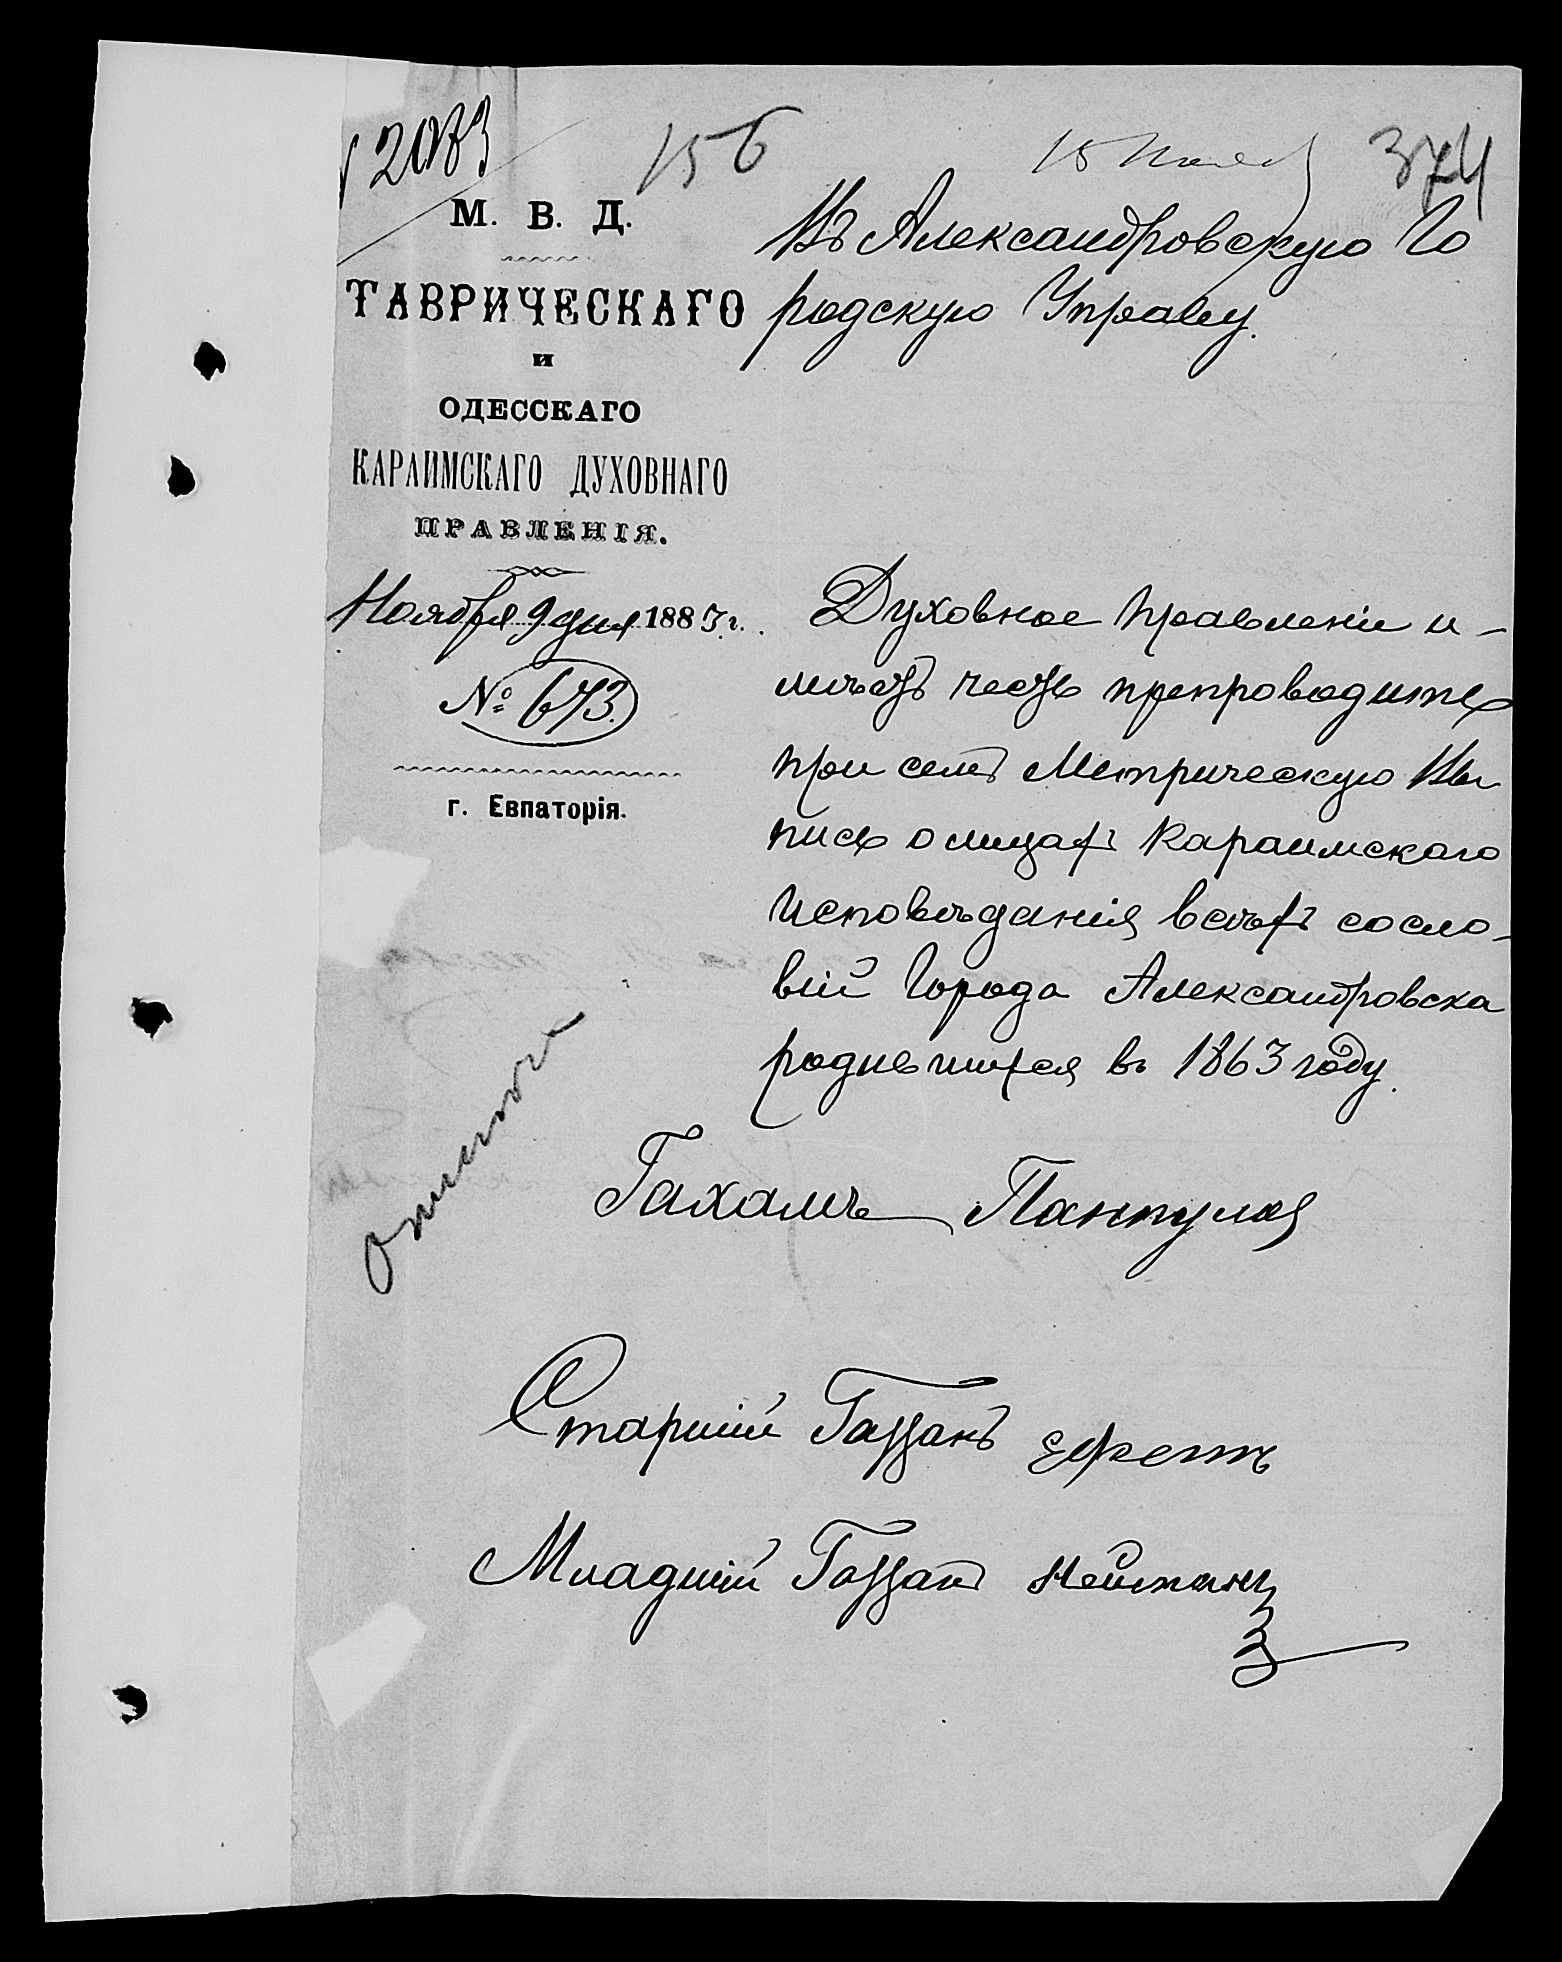 156
374
М. В. Д.
ТАВРИЧЕСКАГО
и
ОДЕССКАГО
КАРАИМСКАГО ДУХОВНАГО
ПРАВЛЕНІЯ.
Ноября 9 дня 1883 г.
№ 673.
г. Евпаторія.
Въ Александровскую Го
родскую Управу.
Духовное Правленіе и-
мѣетъ честь препроводить
при семъ Метрическую Вы
пись о лицахъ Караимскаго
Исповѣданія всѣхъ сосло-
вій Города Александровска
родившихся въ 1863 году.
Гахамъ Панпулов
Старшій Газзанъ Ефетъ
Младшій Газзанъ Нейманъ